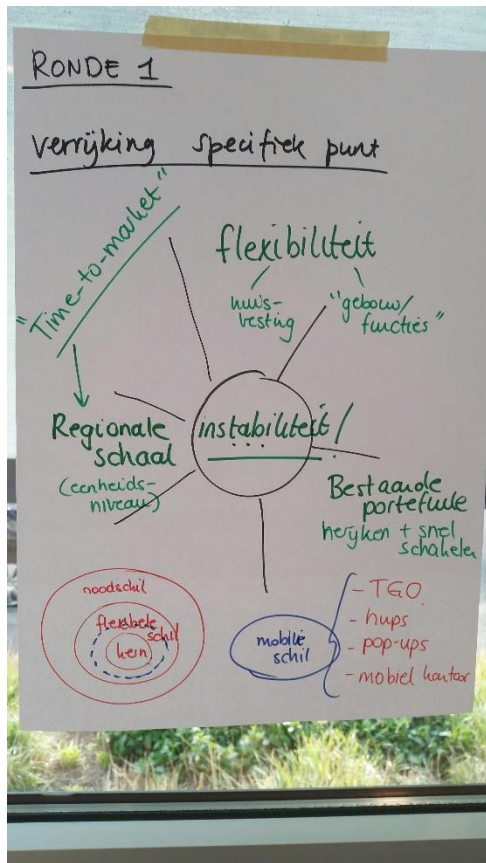 RONDE 1
verrijking specifiek punt
"Time-to-market"
flexibiliteit
huis-
vesting
"gebouw/
functies"
Regionale
schaal
(eenheids-
niveau)
instabiliteit/
...
Bestaande
portefeuille
herijken + snel
schakelen
noodschil
flexibele
schil
kern
mobile
schil
- TGO
- hups
- pop-ups
- mobiel kantoor